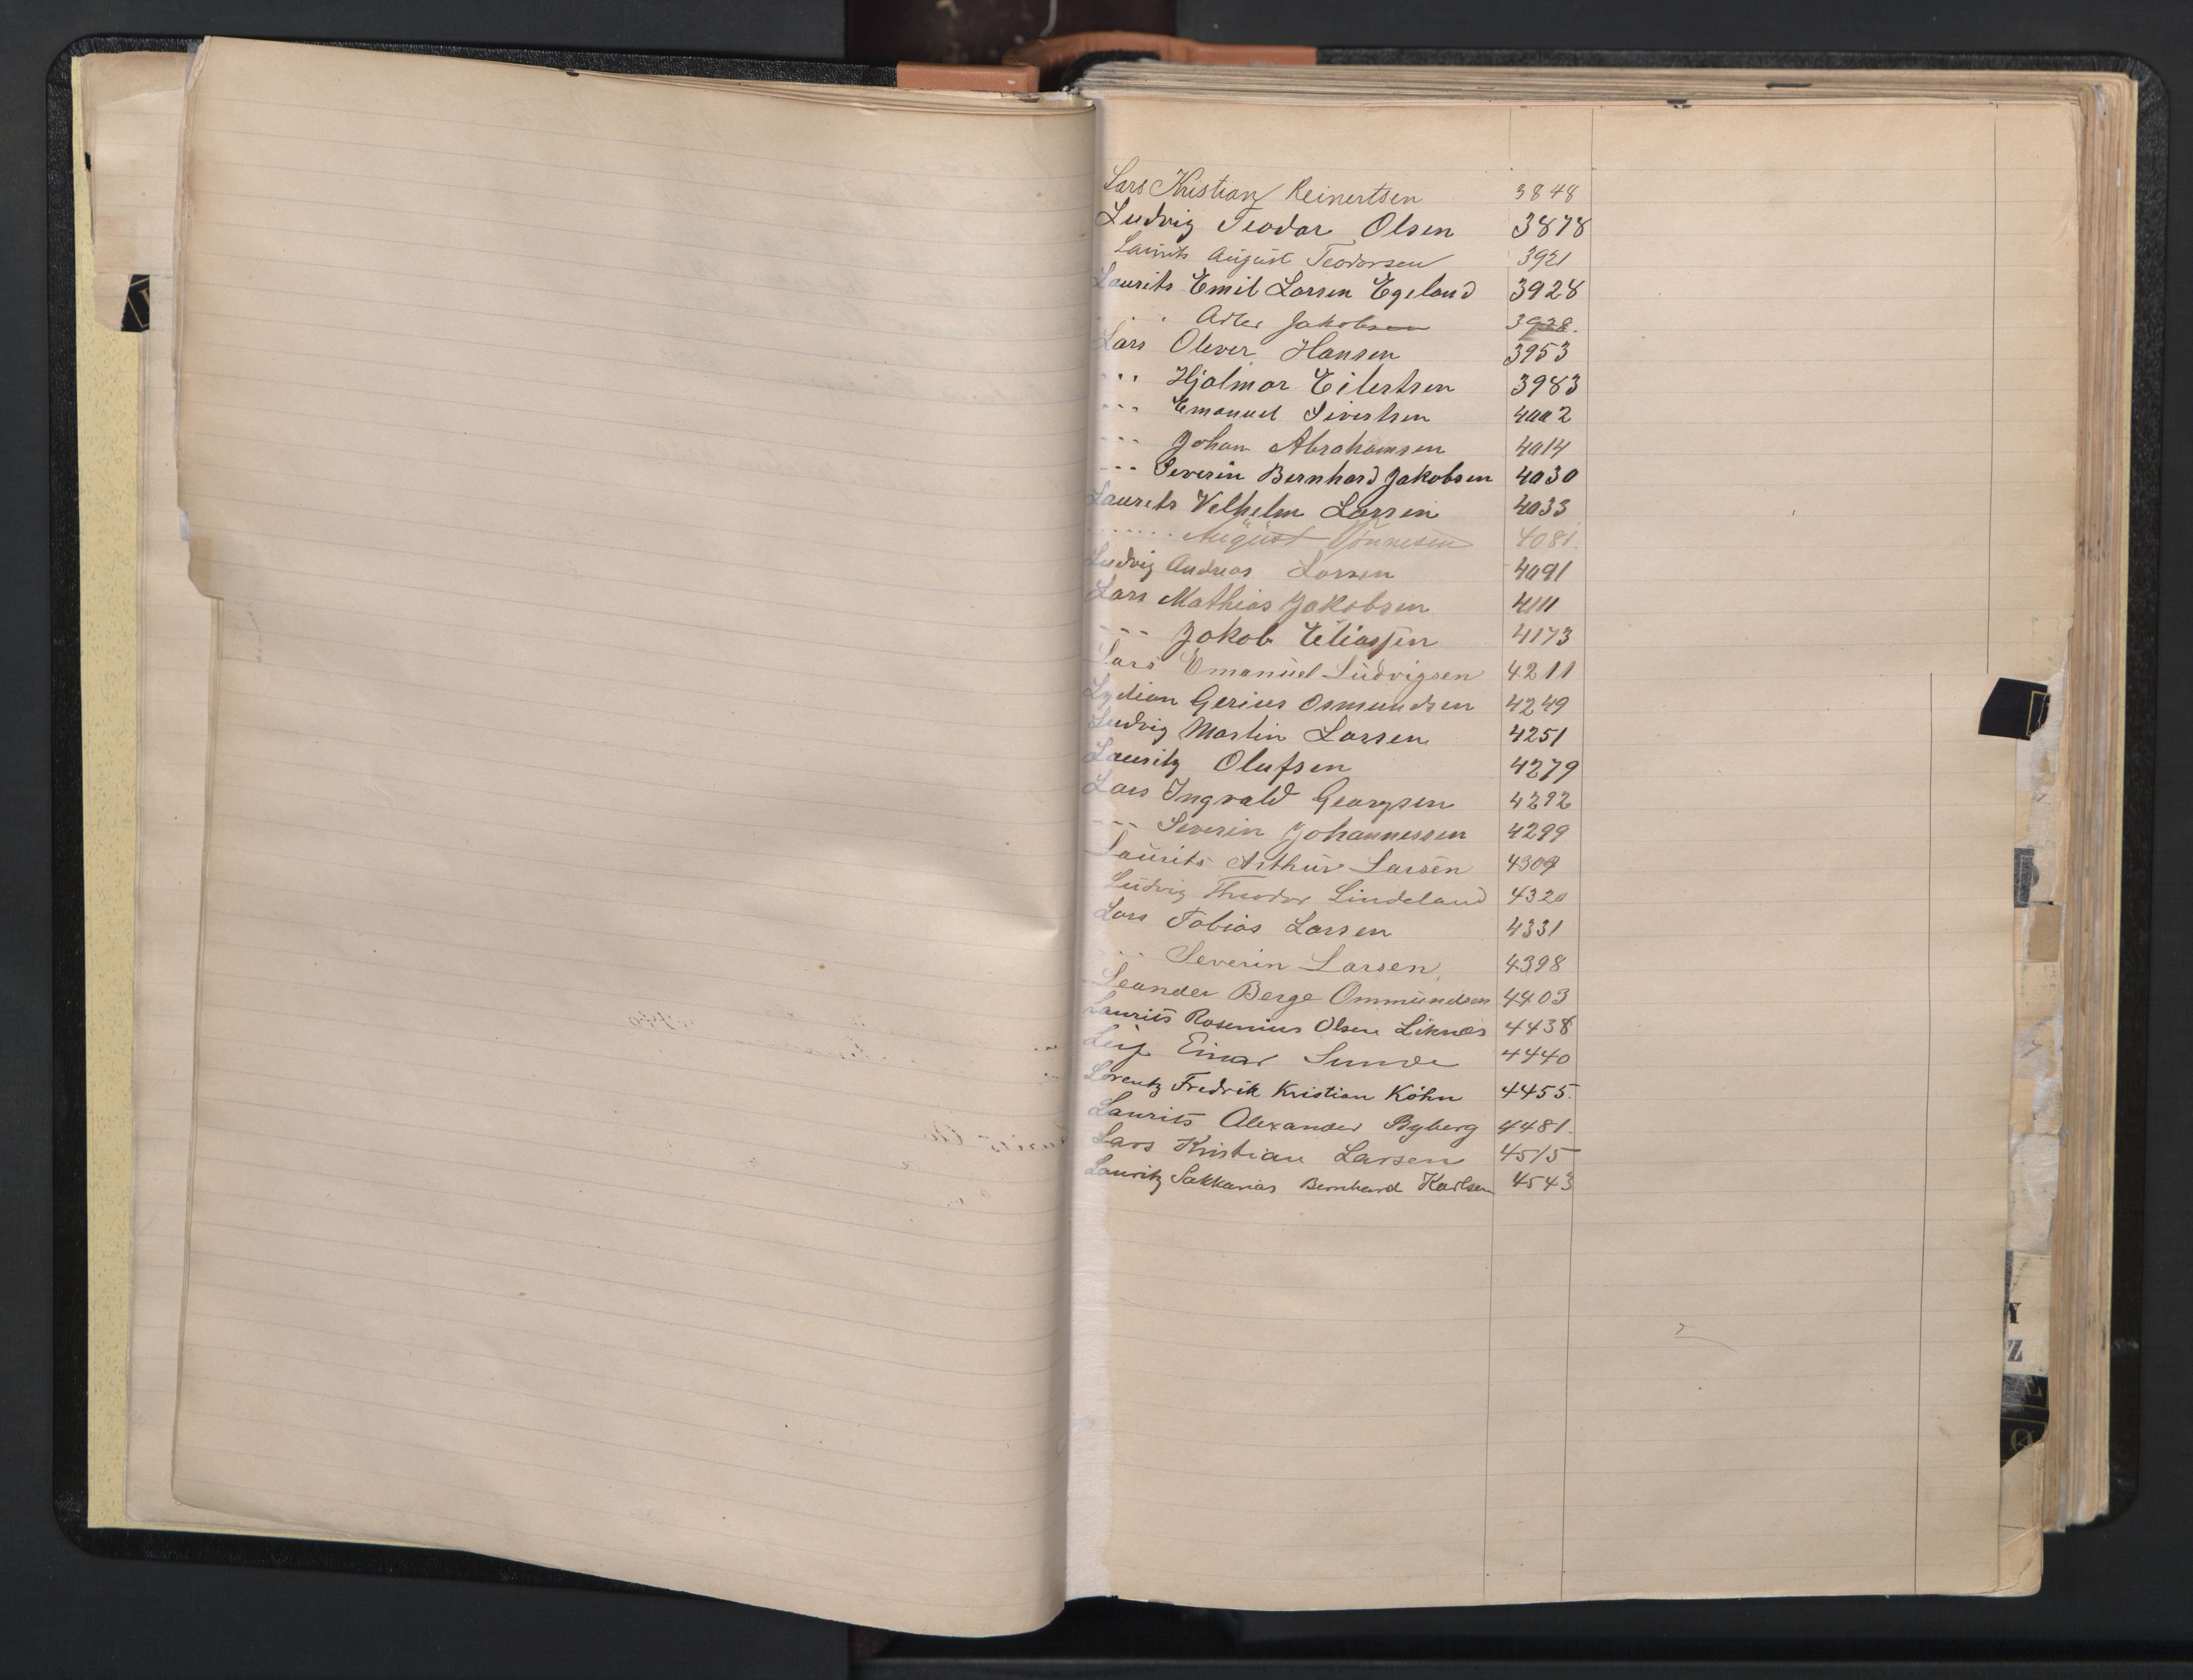 Lars Kristian Reinertsen 3848
Ludvig Teodor Olsen 3878
Laurits August Teodorsen 3921
Laurits Emil Larsen Egeland 3928
. . . Adler Jakobsen 3928.
Lars Oliver Hansen 3953
--- Hjalmar Eilertsen 3983
--- Emanuel Sivertsen 4002
--- Johan Abrahamsen 4014
--- Severin Bernhard Jakobsen 4030
Laurits Velhelm Larsen 4033
...... August Tönnesen 4081.
Ludvig Andreas Larsen 4091
Lars Mathias Jakobsen 4111
--- Jakob Eliassen 4173
Lars Emanuel Ludvigsen 4211
Lydian Gerius Osmundsen 4249
Ludvig Martin Larsen 4251
Lauritz Olufsen 4279
Lars Ingvald Georgsen 4292
--- Severin Johannessen 4299
Laurits Arthur Larsen 4309
Ludvig Theodor Lindeland 4320
Lars Tobias Larsen 4331
--- Severin Larsen 4398
Leander Berge Ommundsen 4403
Laurits Rosenius Olsen Liknes 4438
Leif Einar Sunde 4440
Lorentz Fredrik Kristian Köhn 4455.
Laurits Alexander Byberg 4481.
Lars Kristian Larsen 4515
Lauritz Sakkarias Bernhard Karlsen 4543
Y
Z